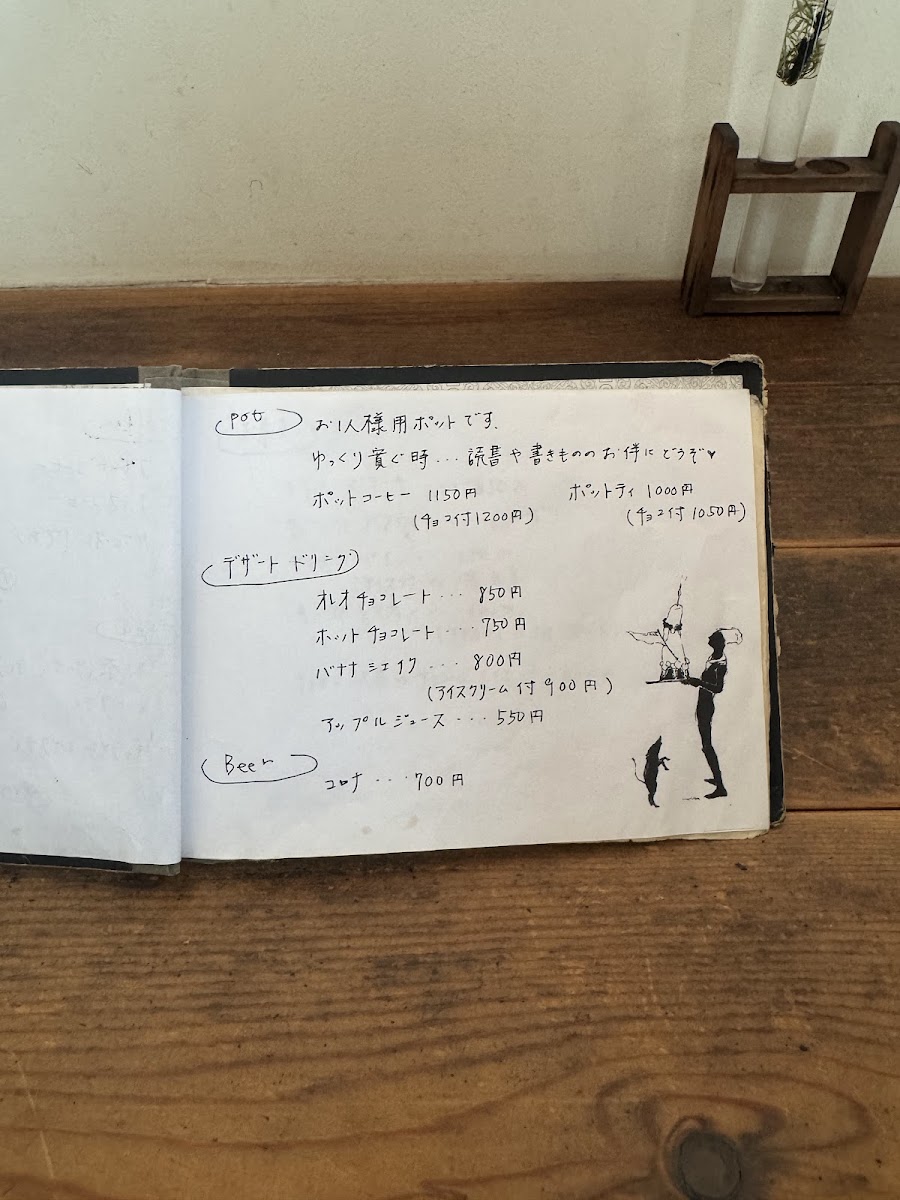 pot お1人様用ポットです.
ゆっくり寛ぐ時...読書や書きもののお伴にどうぞ♥
ポットコーヒー 1150円 ポットティ 1000円
(チョコ付1200円) (チョコ付 1050円)
デザート ドリンク
オレオチョコレート... 850円
ホットチョコレート... 750円
バナナシェイク... 800円
(アイスクリーム付 900円)
アップルジュース... 550円
Beer
コロナ... 700円